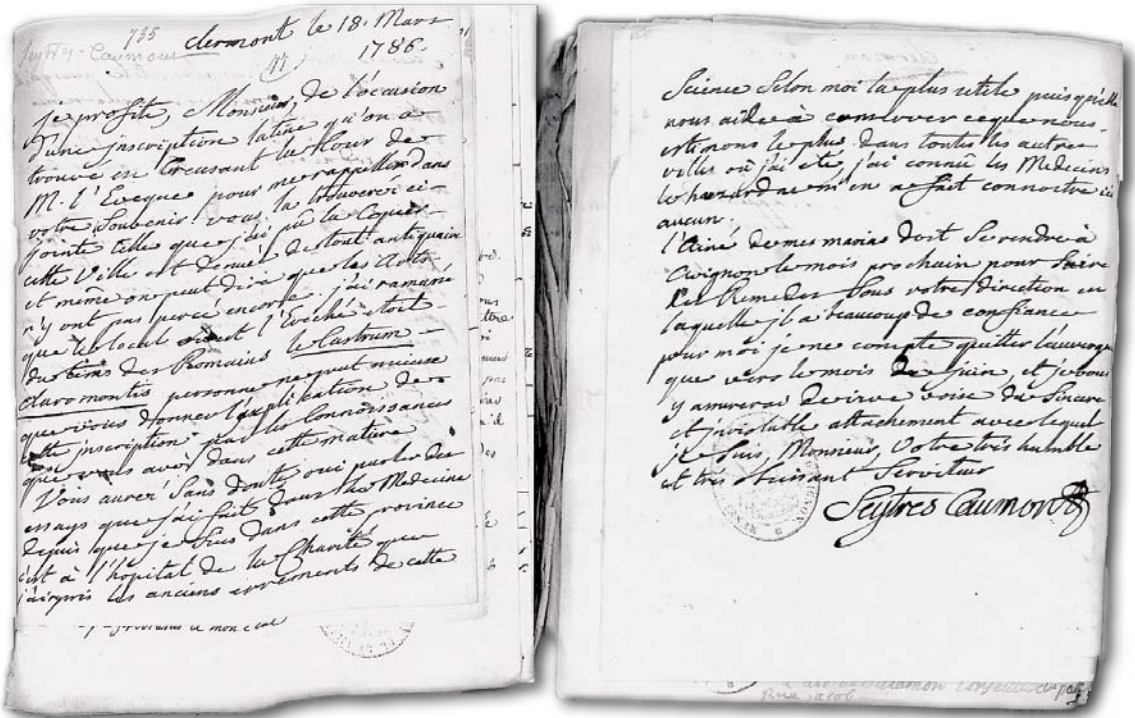 735
Seytres-Caumont
clermont le 18. Mars
1786.
je profite, Monsieur, de l'occasion
d'une jnscription latine qu'on a
trouvé en creusant la Cour de
M. l'Eveque pour me rappeller dans
votre Souvenir. vous la trouveréz ci-
jointe telle que j'ai pû la Copier.
cette Ville est denuée de tout antiquaire
et même on peut dire que les Arts
n'y ont pas percé encore. j'ai ramassé
que le local ou est l'Evéché etoit
du tems des Romains le Castrum
claromontis personne ne peut mieux
que vous donner l'explication de
cette jnscription par les Connoissances
que vous avés dans cette matiere
Vous auréz Sans doute oui parler des
essays que j'ai fait dans la Medecine
depuis que je Suis dans cette province
c'est à l'hopital de la Charité que
j'ai repris les anciens errements de cette
Science Selon moi la plus utile puisqu'elle
nous aide à conserver ce que nous
estimons le plus. dans toutes les autres
villes où j'ai eté, j'ai connû les Medecins
le hazard ne m'en a fait connoitre ici
aucun.
l'Ainé de mes marins doit Se rendre à
Avignon le mois prochain pour faire
des Remedes Sous votre direction en
laquelle jl a beaucoup de confiance
pour moi je ne compte quitter l'auvergne
que vers le mois de juin, et je vous
y assurerai de vive voix du Sincere
et jnviolable attachement avec lequel
je Suis, Monsieur, Votre très humble
et très obeissant Serviteur
Seytres Caumont